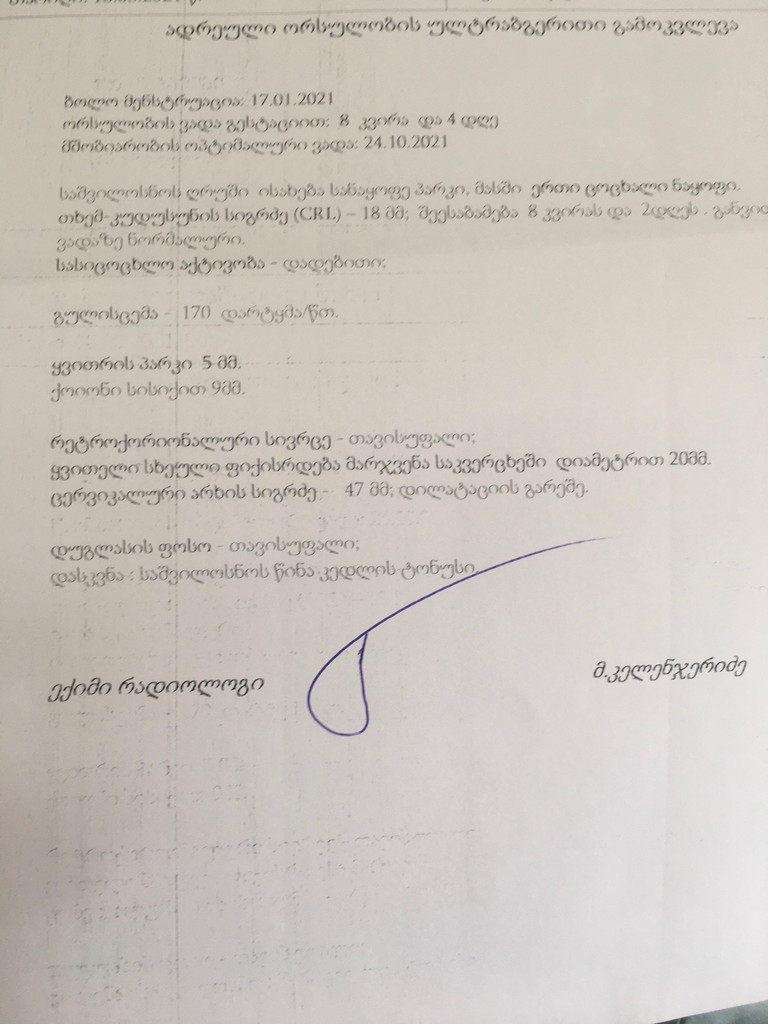 ადრეული ორსულობის ულტრაბგერითი გამოკვლევა
ბოლო მენსტრუაცია: 17.01.2021
ორსულობის ვადა გესტაციით: 8 კვირა და 4 დღე
მშობიარობის ოპტიმალური ვადა: 24.10.2021
საშვილოსნოს ღრუში ისახება სანაყოფე პარკი, მასში ერთი ცოცხალი ნაყოფი.
თხემ-კუდუსუნის სიგრძე (CRL) – 18 მმ; შეესაბამება 8 კვირას და 2დღეს . განვით
ვადაზე ნორმალური.
სასიცოცხლო აქტივობა - დადებითი;
გულისცემა - 170 დარტყმა/წთ.
ყვითრის პარკი 5 მმ.
ქოიონი სისიქით 9მმ.
რეტროქორიონალური სივრცე - თავისუფალი;
ყვითელი სხეული ფიქისრდება მარჯვენა საკვერცხეში დიამეტრით 20მმ.
ცერვიკალური არხის სიგრძე - 47 მმ; დილატაციის გარეშე.
დუგლასის ფოსო - თავისუფალი;
დასკვნა : საშვილოსნოს წინა კედლის ტონუსი.
ექიმი რადიოლოგი
მ.კელენჯერიძე